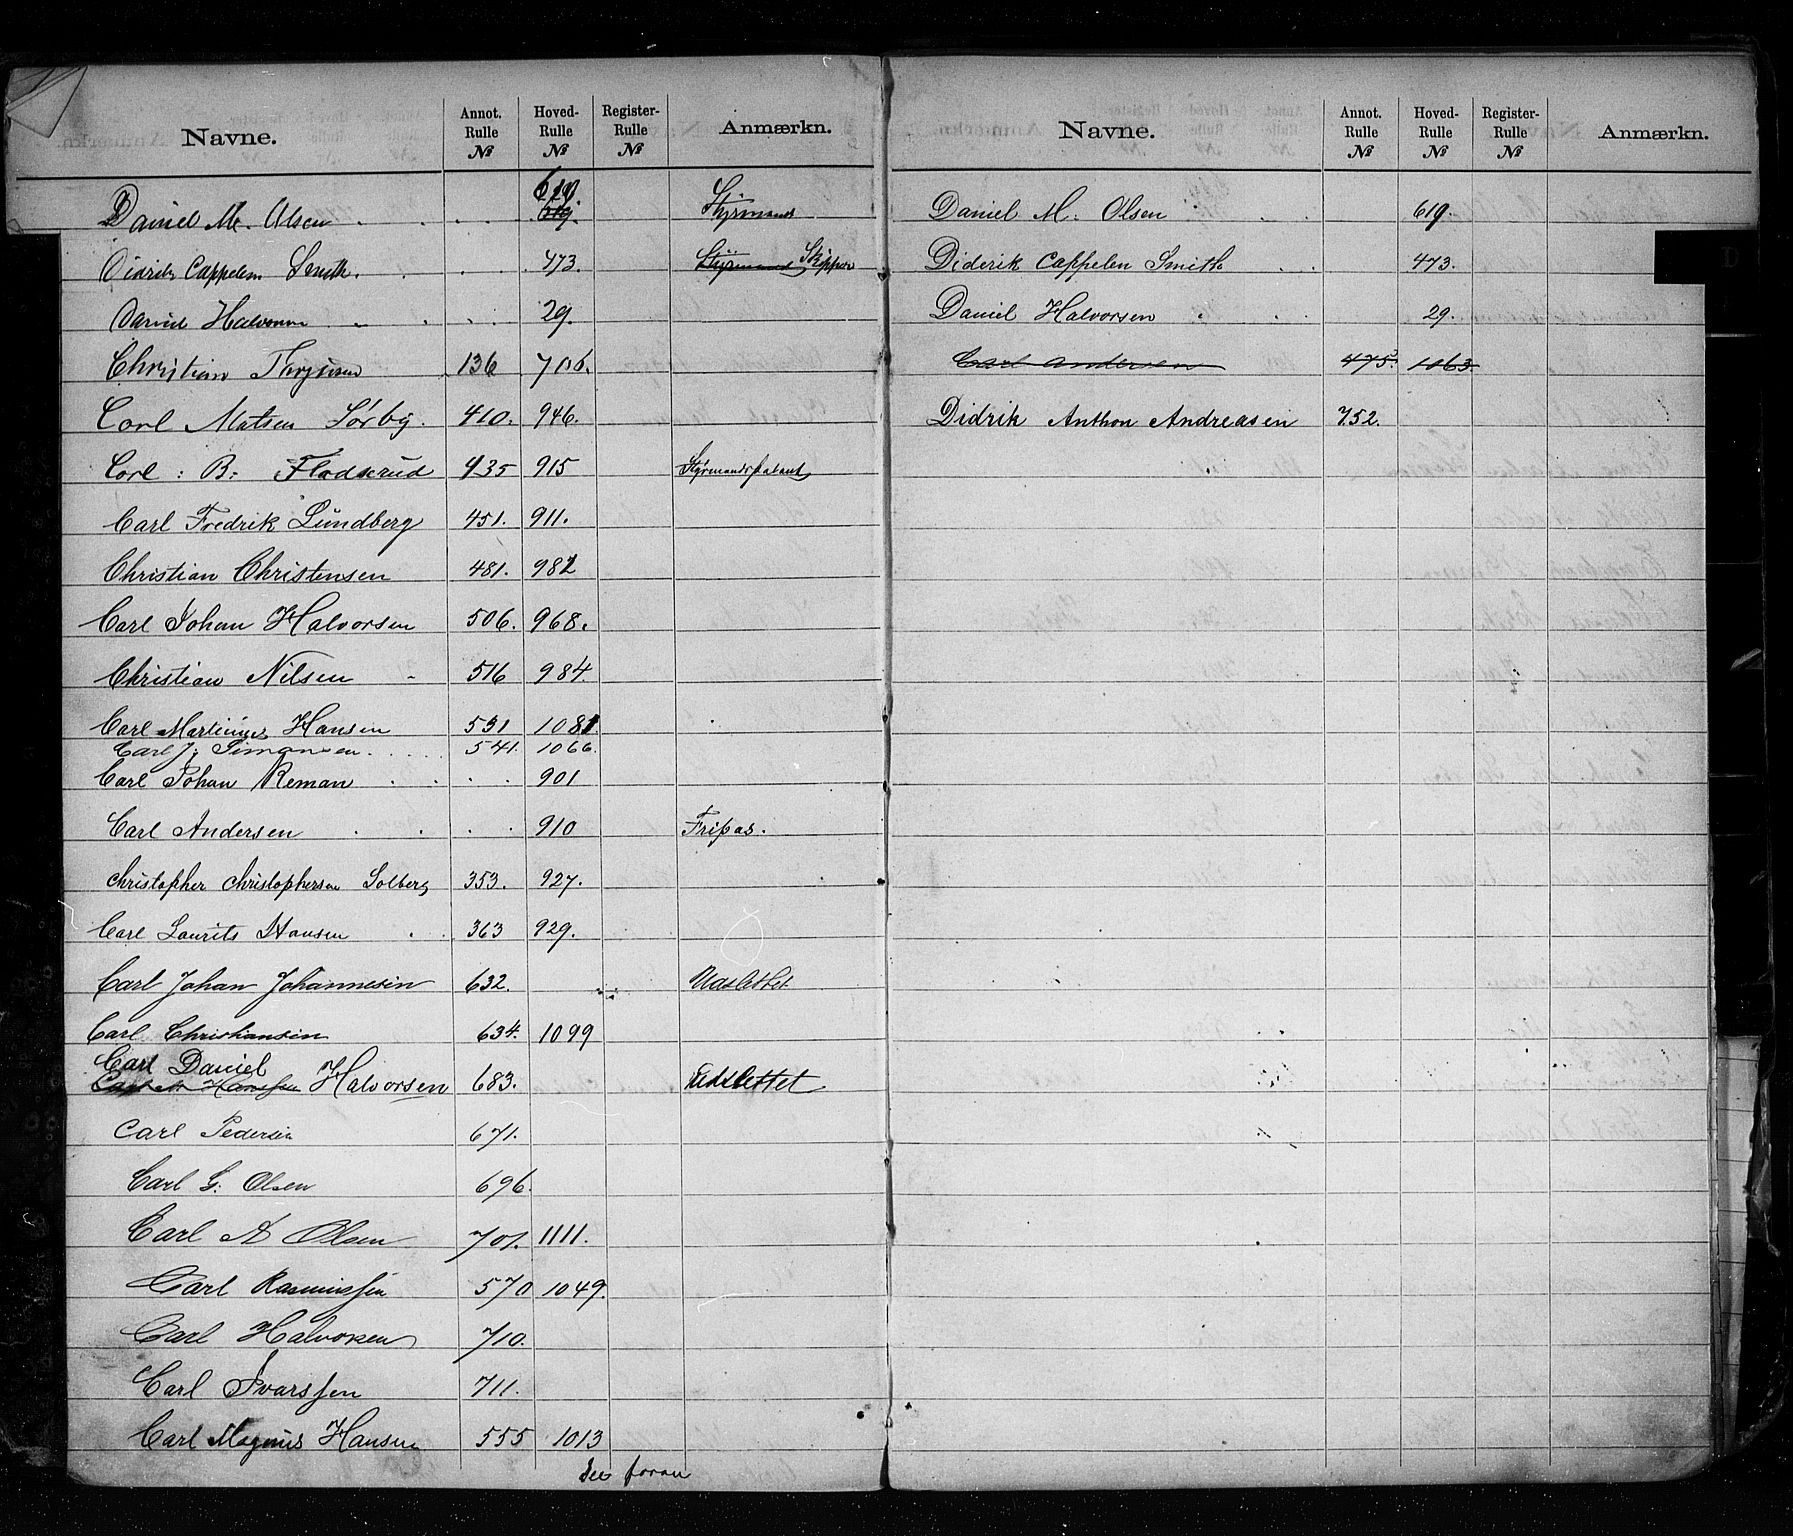 Navne. Annot. Rulle № Hoved-Rulle № Register-Rulle № Anmærkn.
Daniel M. Olsen 619. Styrmand
Didrik Cappelen Smith. 473. Styrmand Skipper
Daniel Halvorsen 29.
Christian Thygesen 136 706.
Carl Matsen Sørby. 410. 946.
Carl: B: Flodskrud 435 915 Styrmandspatent
Carl Fredrik Lundberg 451. 911.
Christian Christensen 481. 982
Carl Johan Halvorsen 506. 968.
Christian Nilsen 516 984.
Carl Martinius Hansen 531 1081
Carl J. Simonsen. 541. 1066.
Carl Johan Reman 901
Carl Andersen 910 Fripas.
Christopher Christophersen Solberg 353. 927.
Carl Laurits Hansen 363 929.
Carl Johan Johannesen 632. Udslettet
Carl Christiansen 634. 1099
Carl Daniel
Hansen Halvorsen 683. Udslettet
Carl Pedersen 671.
Carl G. Olsen 696.
Carl A Olsen 701. 1111.
Carl Rasmussen 570 1049.
Carl Halvorsen 710.
Carl Ivarssen 711.
Carl Magnus Hansen 555 1013
See foran
Navne. Annot. Rulle № Hoved-Rulle № Register-Rulle № Anmærkn.
Daniel M. Olsen 619.
Diderik Cappelen Smith 473.
Daniel Halvorsen 29.
Carl Andersen 475. 1063.
Didrik Anthon Andreasen 752.
D